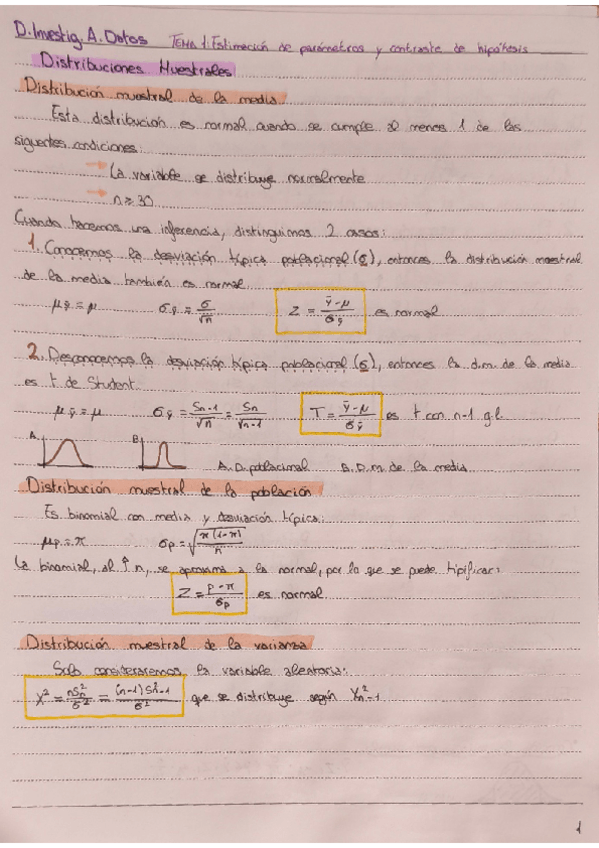 D.Investig. A. Datos TEMA 1: Estimación de parámetros y contraste de hipótesis
Distribuciones Muestrales
Distribución muestral de la media
Esta distribución es normal cuando se cumple al menos 1 de las
siguientes condiciones:
→ La variable se distribuye normalmente
→ n ≥ 30
Cuando hacemos una inferencia, distinguimos 2 casos:
1. Conocemos la desviación típica poblacional (σ), entonces la distribución muestral
de la media también es normal
μȳ = μ σȳ = σ/√n Z = (ȳ-μ)/σȳ es normal
2. Desconocemos la desviación típica poblacional (σ), entonces la d.m. de la media
es t de Student.
μȳ = μ σȳ = Sn-1/√n = Sn/√n-1 T = (ȳ-μ)/σȳ es t con n-1 g.l.
A. B. A. D. poblacional B. D.m. de la media
Distribución muestral de la población
Es binomial con media y desviación típica:
μp = π σp = √(π(1-π)/n)
La binomial, al ↑ n, se aproxima a la normal, por lo que se puede tipificar:
Z = (p-π)/σp es normal
Distribución muestral de la varianza
Solo consideraremos la variable aleatoria:
X² = nSn²/σ² = (n-1)S²n-1/σ² que se distribuye según X²n-1
1